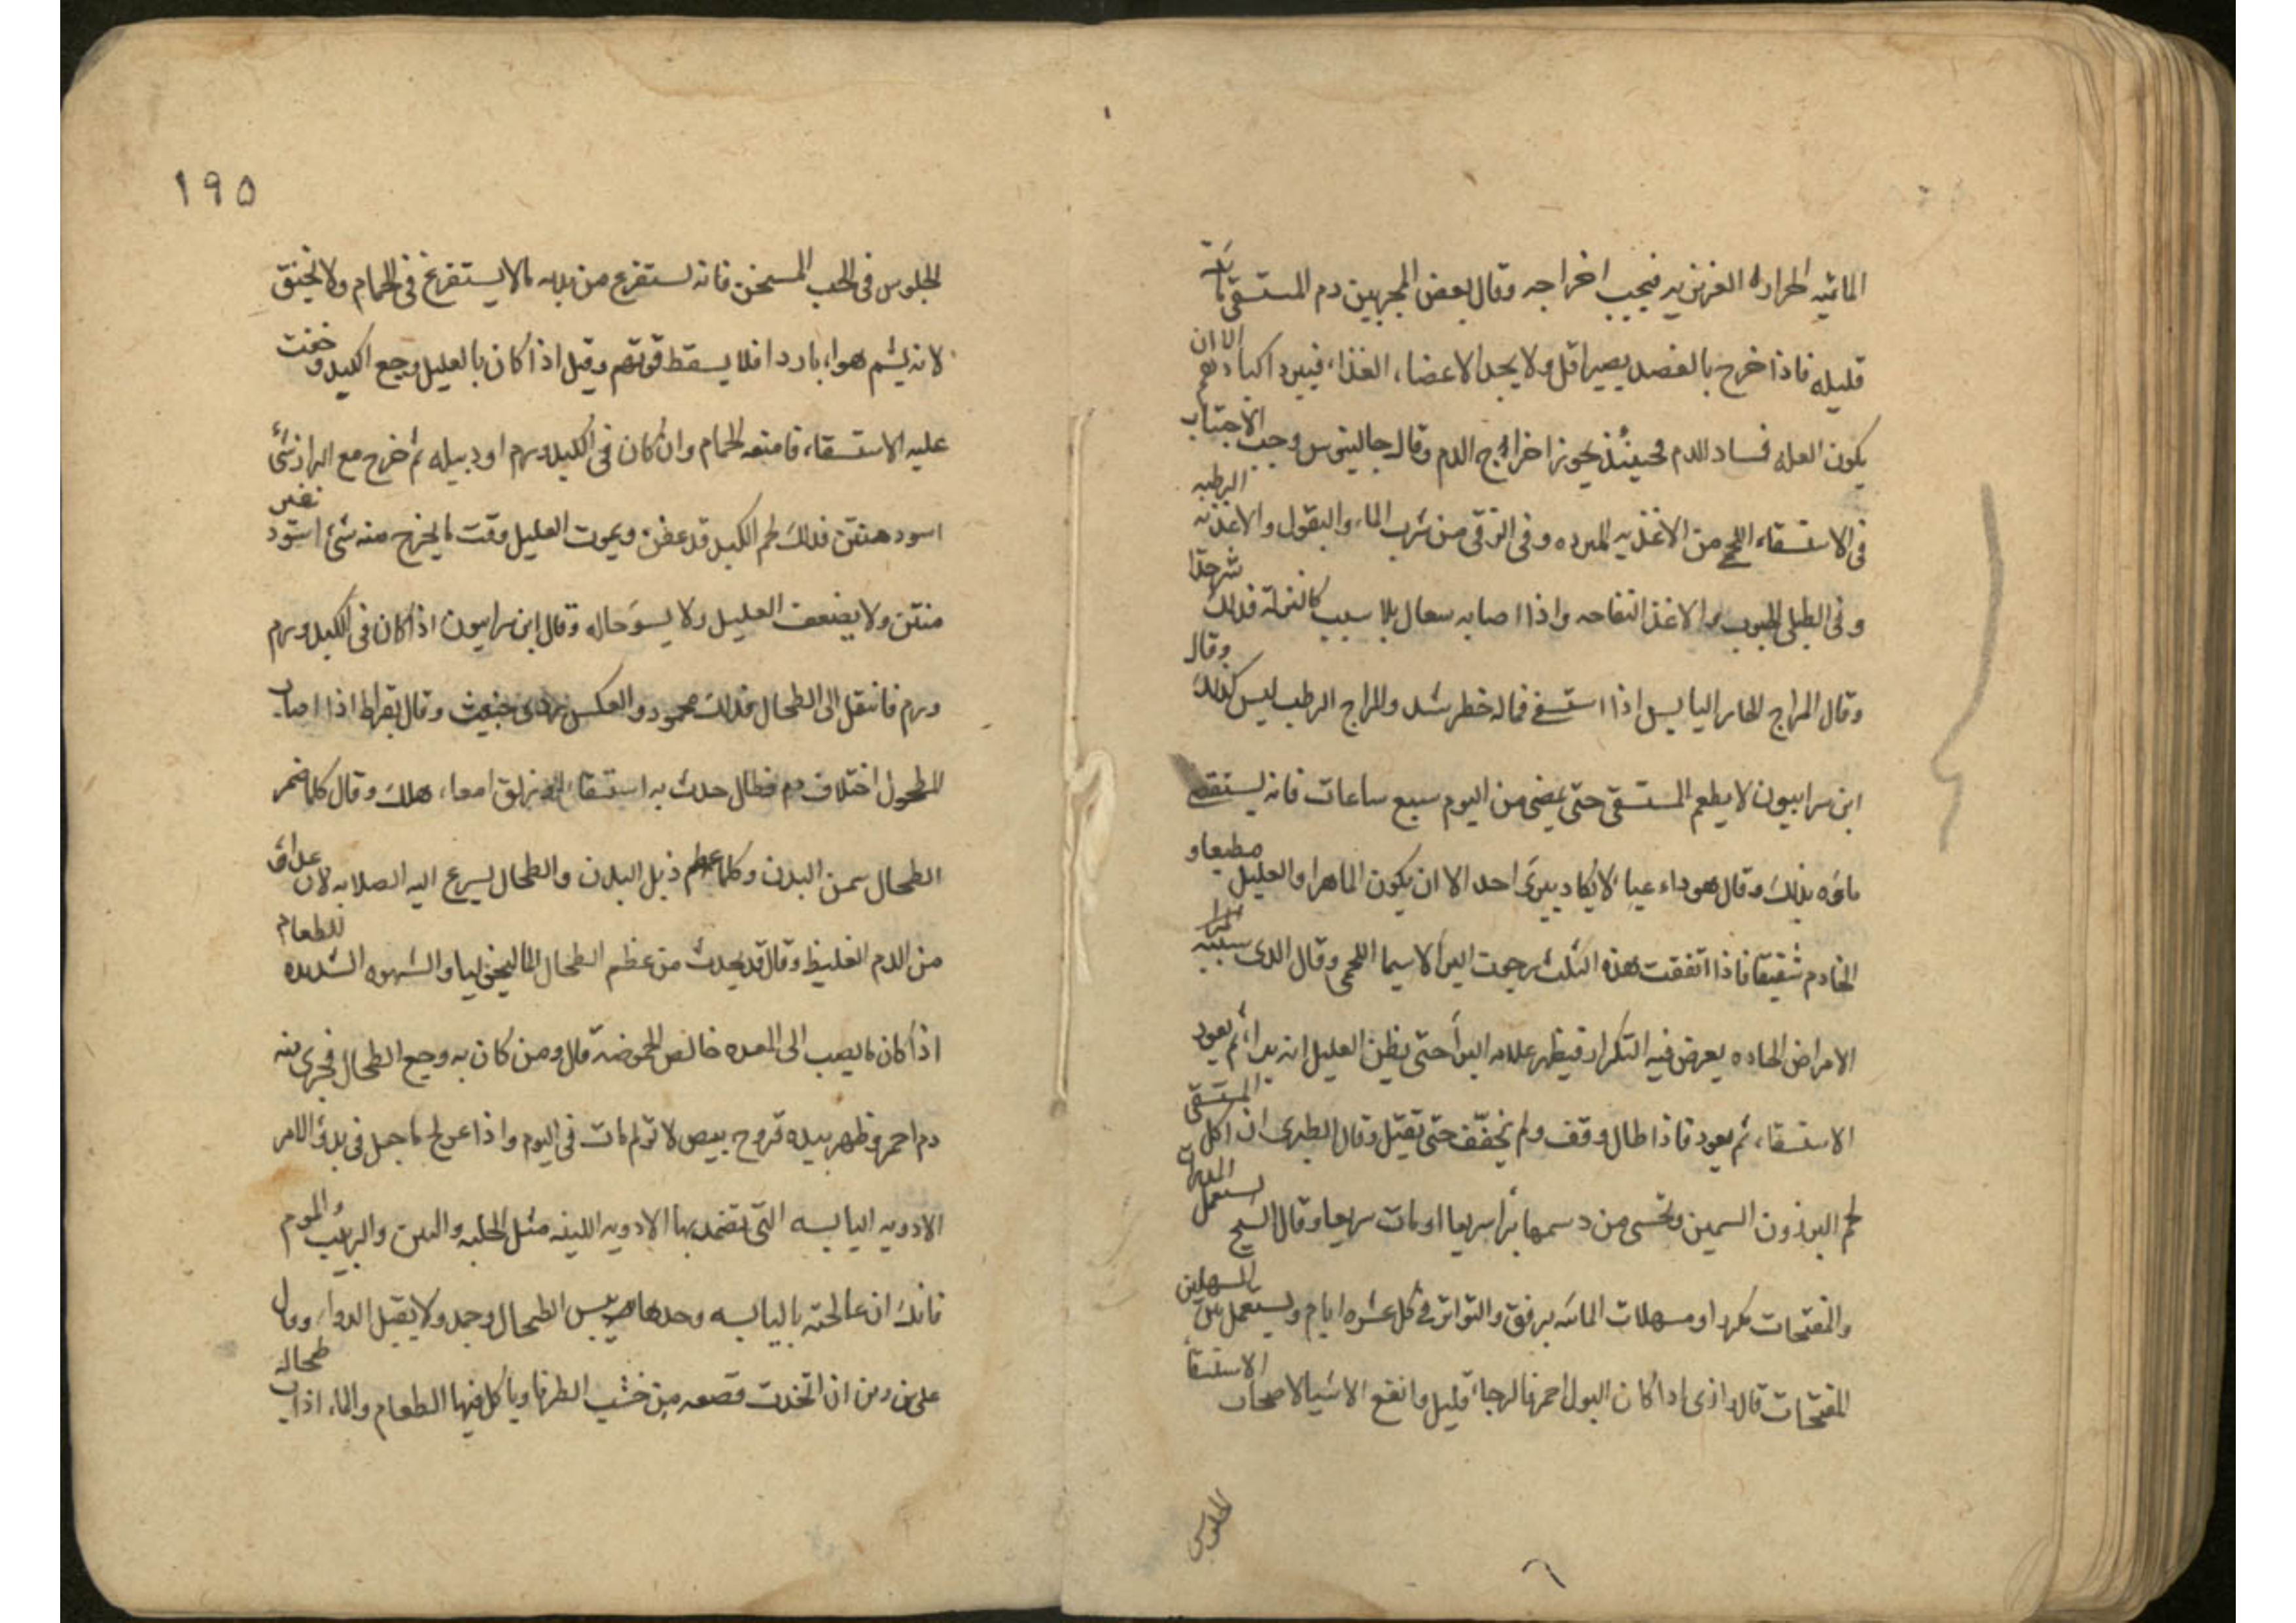 المائيه الحراره الغريزيه فيجب اخراجه وقال بعض المجربين دم المستسقى
قليله فاذا خرج بالفصد يصير اقل ولا يجد الاعضاء الغذاء فيبرد اكبادهم الا ان
يكون العله فساد الدم فحينئذ يجوز اخراج الدم وقال جالينوس وجب الاجتناب
فى الاستسقاء اللحمى من الاغذيه المبرده وفى الزقى من شرب الماء والبقول والاغذيه الرطبه
وفى الطبلى الحبوب والاغذ النفاخه واذا اصابه سعال بلا سبب كالنزله فذلك شر جدا
وقال المزاج الحار اليابس اذا استسقى فماله خطر شد والمزاج الرطب ليس كذلك وقال
ابن سرابيون لا يطعم المستسقى حتى يمضى من اليوم سبع ساعات فانه
بذلك وقال هو داء عيا لا يكاد يبرئ احد الا ان يكون الماهرا والعليل مطيعا و
الخادم شفيقا فاذا اتفقت هذه الثلث رجوت البرء لاسيما اللحمى وقال الذى سببه
الامراض الحاده يعرض فيه التكرار فيظهر علامه البرأ حتى يظن العليل انه برأ ثم يعود
الاستسقاء ثم يعود فاذا طال وقف ولم يخفف حتى تقتل وقال الطبرى ان اكل المستسقى
لحم البرذون السمين وتحسى من دسمها برأ سريعا او مات سريعا وقال الشيخ يستعمل
والمفتحات او مسهلات المائيه برفق والتواتر فى كل عشره ايام ويستعمل بين المسهلين
المفتحات قال اذا كان البول احمر فالرجاء قليل وانفع الاشيا لاصحاب الاستسقا
الجلوس
١٩٥
الجلوس فى الحب المسخن فانه يستفرغ من بدنه مالا يستفرغ فى الحمام ولا يختنق
لانه يشم هواء باردا فلا يسقط قوتهم وقيل اذا كان بالعليل وجع الكبد و خفت
عليه الاستسقاء فامنعه الحمام وان كان فى الكبد ورم او دبيله ثم خرج مع البراز شئ
اسود منتن فذلك لحم الكبد قد عفن ويموت العليل وقت ما يخرج منه شئ اسود
منتن ولا يضعف العليل ولا يسوء حاله وقال ابن سرابيون اذا كان فى الكبد ورم
ورم فانتقل الى الطحال فذلك محمود والعكس ردى خبيث وقال بقراط اذا اصاب
المطحول اختلاف دم فطال حدث به استسقاء زلق امعاء هلك وقال كلما ضمر
الطحال سمن البدن وكلما عظم ذبل البدن والطحال يسرع اليه الصلابه لان
من الدم الغليظ وقال قد يحدث من عظم الطحال الماليخوليا والشهوه الشديده للطعام
اذا كان ما يصب الى المعده خالص الحموضة قال ومن كان به وجع الطحال فجرى منه
دم احمر وظهر بيده قروح بيض لا تولم مات فى اليوم واذا عولج ما جبل فى بدؤ الامر
الادويه اليابسه التى تضمد بها الادويه اللينه مثل الحلبه والتين والزبيب والموم
فانك ان عالجته باليابسه وحدها يبس الطحال وجمد ولا يقبل الدواء وقال
على بن ربن ان اتخذت قصعه من خشب الطرفا وياكل فيها الطعام والماء اذاب طحاله